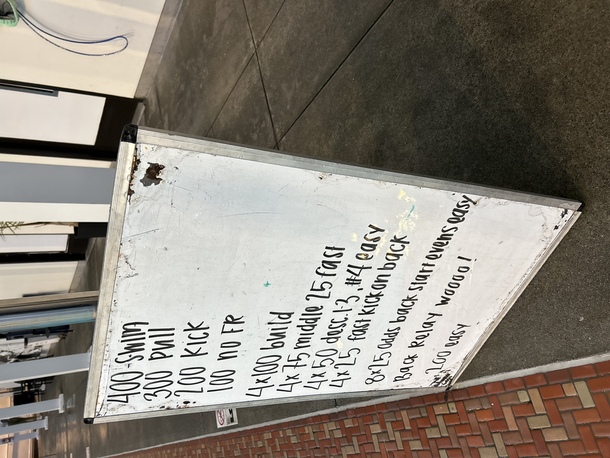 400 swim
300 pull
200 kick
100 no FR
4x100 build
4x75 middle 25 fast
4x50 desc. 1-3, #4 easy
4x25 fast kick on back
8x25 odds back start evens easy
Back Relay woooo!
200 easy